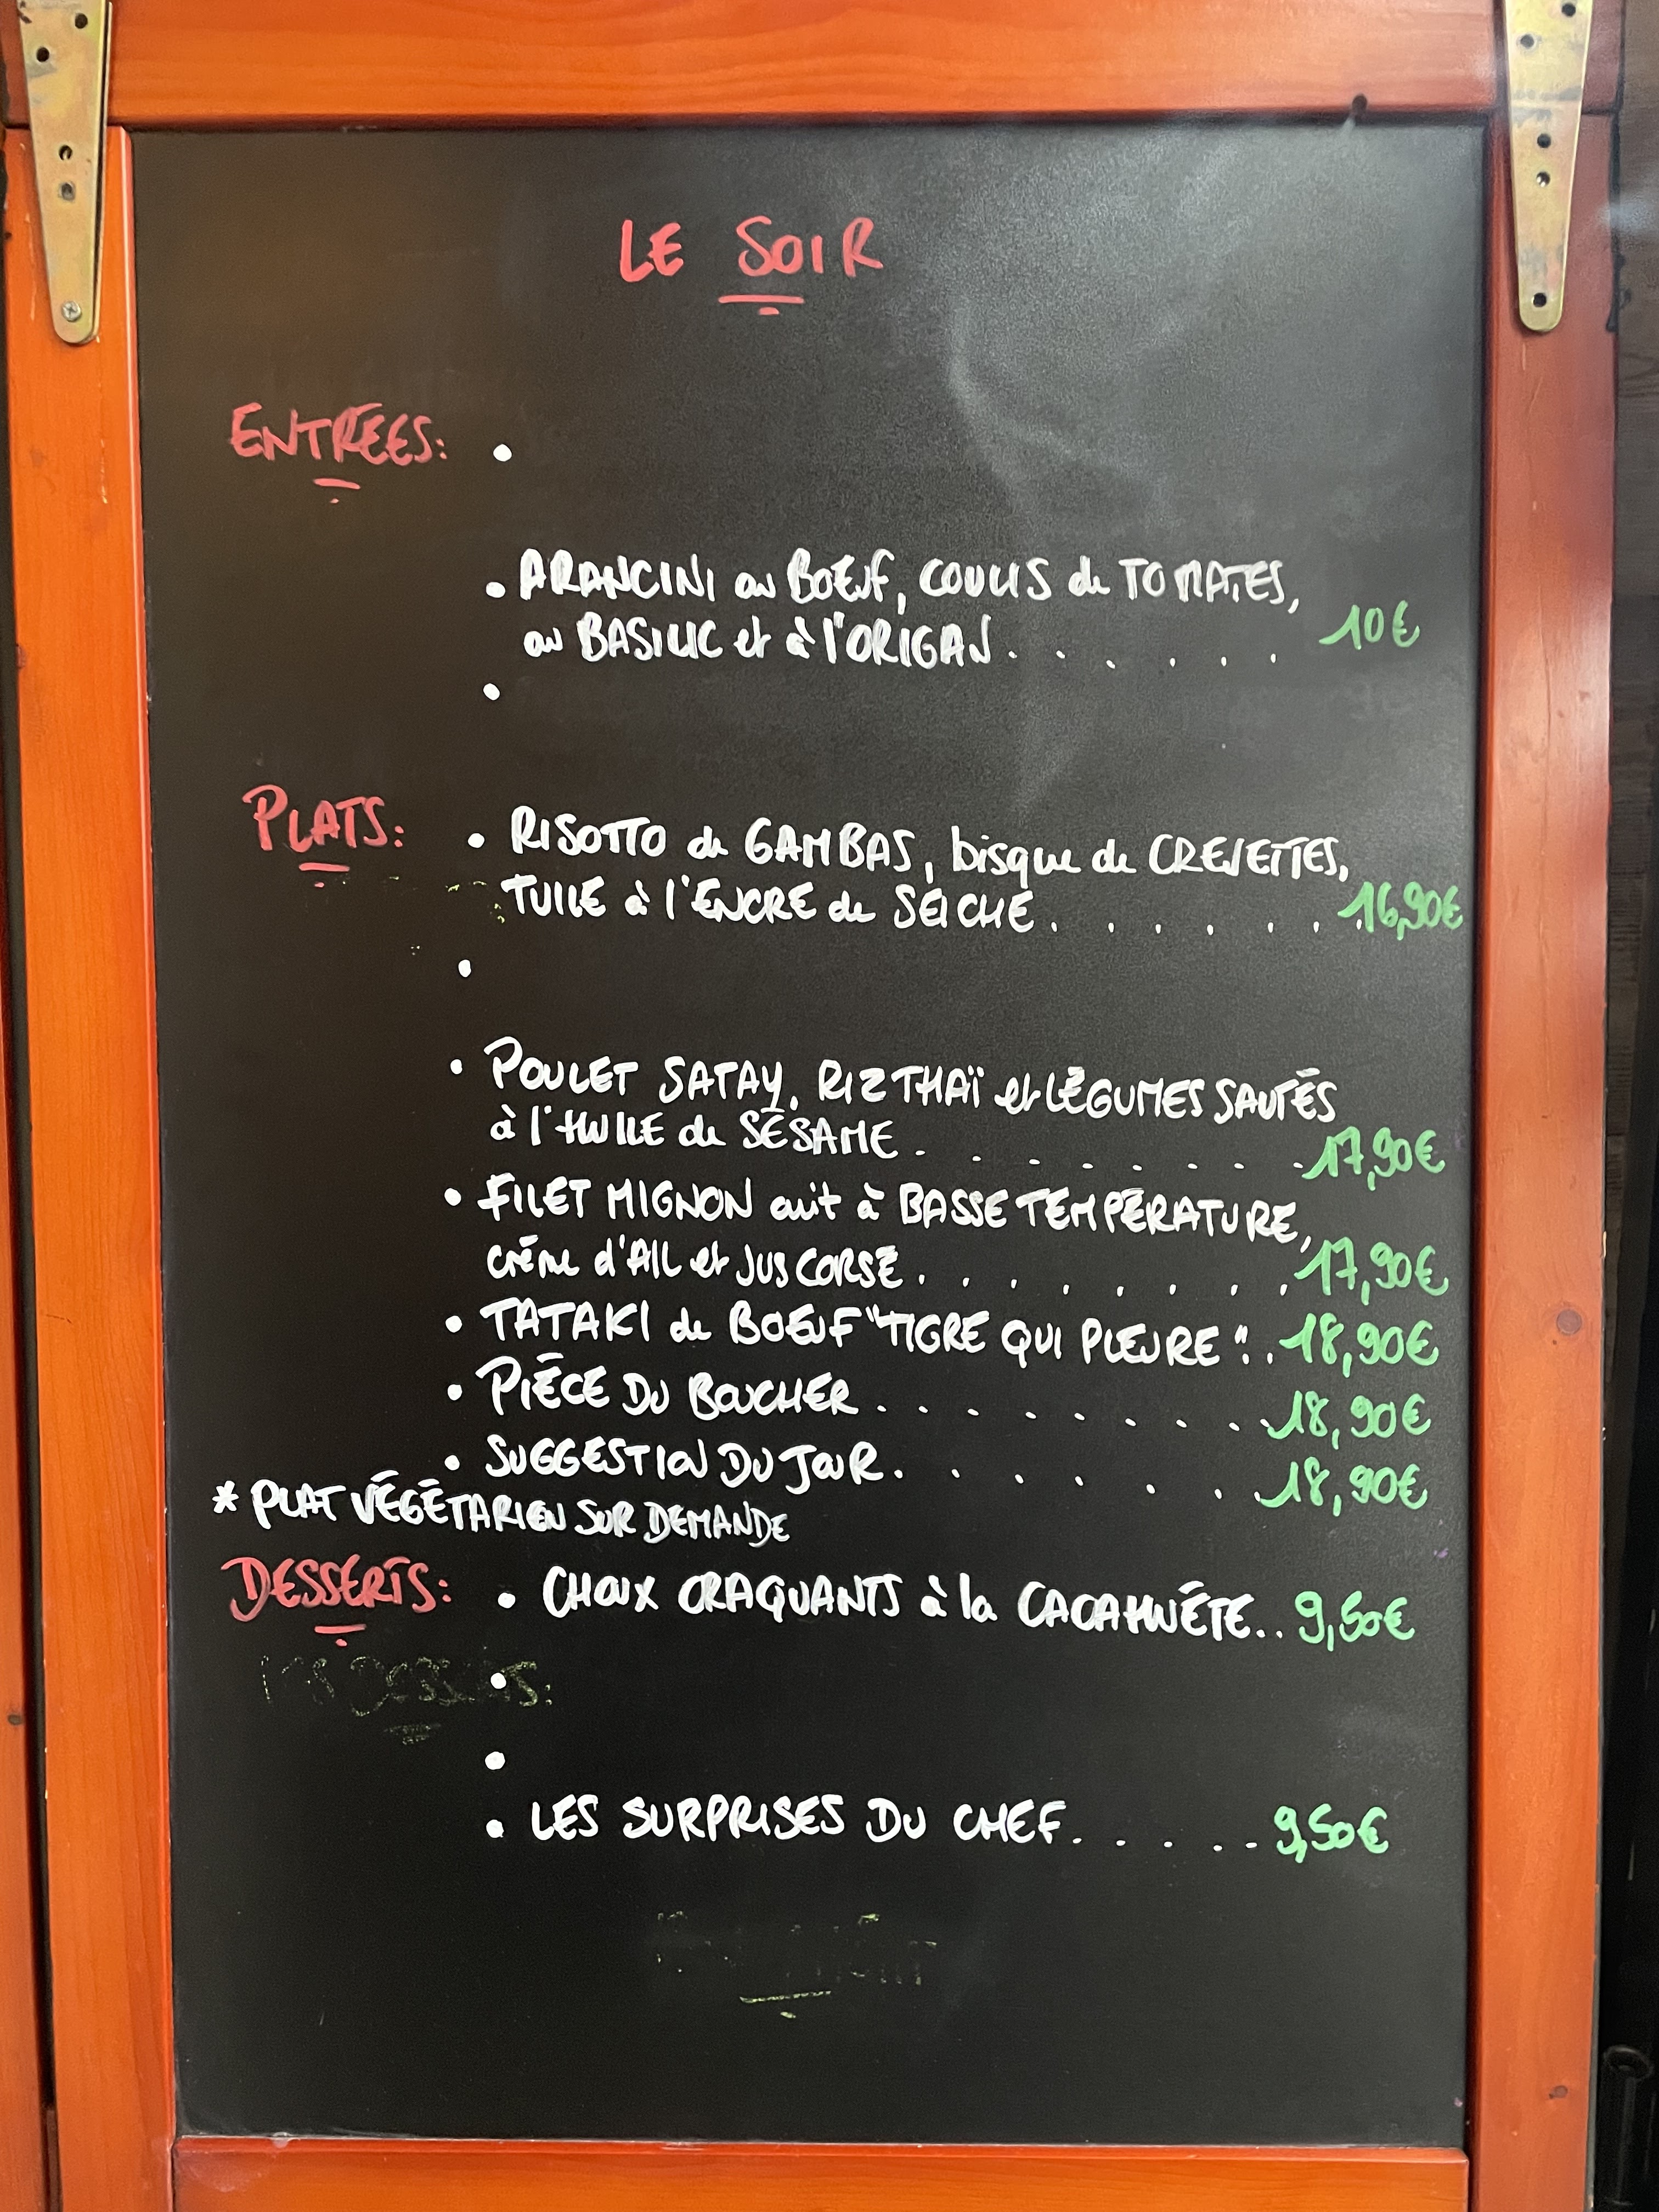 LE SOIR
ENTREES:
• ARANCINI au BOEUF, COULIS de TOMATES,
au BASILIC et à l'ORIGAN. . . . . . 10€
PLATS:
• RISOTTO de GAMBAS, bisque de CREVETTES,
TUILE à l'ENCRE de SEICHE. . . . . . . 16,90€
• POULET SATAY, RIZ THAÏ et LÉGUMES SAUTÉS
à l'HUILE de SÉSAME. . . . . . . . 17,90€
• FILET MIGNON cuit à BASSE TEMPÉRATURE,
crème d'AIL et JUS CORSÉ. . . . . . . . 17,90€
• TATAKI de BOEUF "TIGRE QUI PLEURE".. 18,90€
• PIÈCE DU BOUCHER. . . . . . . . . 18,90€
• SUGGESTION DU JOUR. . . . . . . 18,90€
* PLAT VÉGÉTARIEN SUR DEMANDE
DESSERTS: • CHOUX CRAQUANTS à la CACAHUÈTE.. 9,50€
• LES SURPRISES DU CHEF. . . . . 9,50€